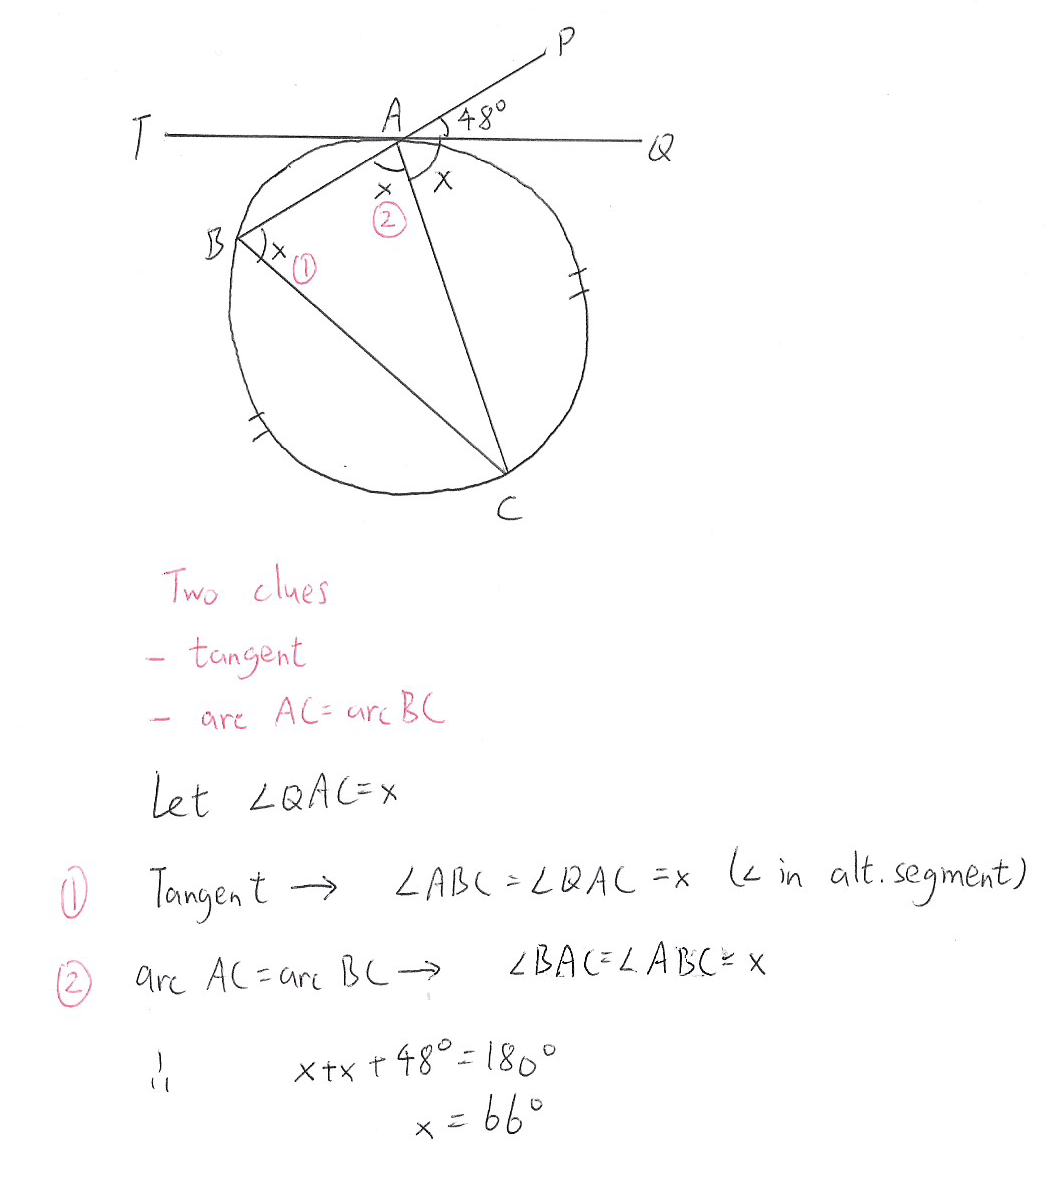 P
T
A
48°
Q
x
x
②
B
x
①
C
Two clues
- tangent
- arc AC=arc BC
Let ∠QAC=x
① Tangent → ∠ABC=∠QAC=x (∠ in alt. segment)
② arc AC=arc BC → ∠BAC=∠ABC=x
∴ x+x+48°=180°
x=66°